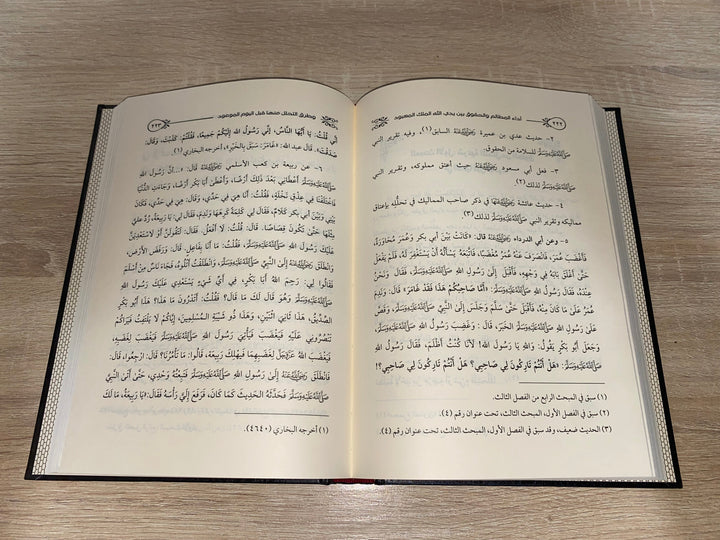 ٢٢٢
أداء المظالم والحقوق بين يدي الله الملك المعبود
٢- حديث عدي بن عميرة السابق(١)، وفيه تقرير النبي
ﷺ للسلامة من الحقوق.
٣- فعل أبي مسعود رضي الله عنه حيث أعتق مملوكه، وتقرير النبي
ﷺ لذلك(٢).
٤- حديث عائشة رضي الله عنها في ذكر صاحب المماليك في تحلُّله بإعتاق
مماليكه وتقرير النبي ﷺ لذلك(٣).
٥- وعن أبي الدرداء رضي الله عنه قال: «كَانَتْ بَيْنَ أبي بكر وعُمَرَ مُحَاوَرَةٌ،
فَأَغْضَبَ أبو بكر عُمَرَ، فَانْصَرَفَ عَنْهُ عُمَرُ مُغْضَبًا، فَاتَّبَعَهُ يَسْأَلُهُ أَنْ يَسْتَغْفِرَ لَهُ، فَلَمْ يَفْعَلْ
حَتَّى أَغْلَقَ بَابَهُ فِي وَجْهِهِ، فَأَقْبَلَ إِلَى رَسُولِ اللهِ ﷺ، فَقَالَ وَنَحْنُ
عِنْدَهُ، فَقَالَ رَسُولُ اللهِ ﷺ: «أَمَّا صَاحِبُكُمْ هَذَا فَقَدْ غَامَرَ»، قَالَ: وَنَدِمَ
عُمَرُ عَلَى مَا كَانَ مِنْهُ، فَأَقْبَلَ حَتَّى سَلَّمَ وَجَلَسَ إِلَى النَّبِي ﷺ، وَقَصَّ
عَلَى رَسُولِ اللهِ ﷺ الخَبَرَ، قَالَ: وَغَضِبَ رَسُولُ اللهِ ﷺ
وَجَعَلَ أَبُو بَكْرٍ يَقُولُ: وَاللهِ يَا رَسُولَ اللهِ! لأَنَا كُنْتُ أَظْلَمَ، فَقَالَ رَسُولُ الله
ﷺ: «هَلْ أَنْتُمْ تَارِكُونَ لِي صَاحِبِي؟ هَلْ أَنْتُمْ تَارِكُونَ لِي صَاحِبِي؟!
(١) سبق في المبحث الرابع من الفصل الثالث.
(٢) سبق في الفصل الأول، المبحث الثالث، تحت عنوان رقم (٤).
(٣) الحديث ضعيف، وقد سبق في الفصل الأول، المبحث الثالث، تحت عنوان رقم (٤).
وطرق التحلل منها قبل اليوم الموعود
٢٢٣
إِنِّي قُلْتُ: يَا أَيُّهَا النَّاسُ، إِنِّي رَسُولُ اللهِ إِلَيْكُمْ جَمِيعًا، فَقُلْتُمْ: كَذَبْتَ، وَقَالَ أبو بكر:
صَدَقْتَ». قَالَ عبد الله: «غَامَرَ: سَبَقَ بِالخَيْرِ»، أخرجه البخاري(١).
٦- عن ربيعة بن كعب الأسلمي رضي الله عنه قال: «...أَنَّ رَسُولَ اللهِ
ﷺ أَعْطَانِي بَعْدَ ذَلِكَ أَرْضًا، وَأَعْطَى أَبَا بَكْرٍ أَرْضًا، وَجَاءَتِ الدُّنْيَا
فَاخْتَلَفْنَا فِي عِذْقِ نَخْلَةٍ، فَقُلْتُ: أَنَا هِيَ فِي حَدِّي، وَقَالَ أَبُو بَكْرٍ: هِيَ فِي حَدِّي، فَكَانَ
بَيْنِي وَبَيْنَ أَبِي بَكْرٍ كَلَامٌ، فَقَالَ لِي كَلِمَةً كَرِهَهَا وَنَدِمَ، فَقَالَ لِي: يَا رَبِيعَةُ، رُدَّ عَلَيَّ
مِثْلَهَا حَتَّى تَكُونَ قِصَاصًا، قَالَ: قُلْتُ: لَا أَفْعَلُ، فَقَالَ: لَتَقُولَنَّ أَوْ لَأَسْتَعْدِيَنَّ
عَلَيْكَ رَسُولَ اللهِ ﷺ، فَقُلْتُ: مَا أَنَا بِفَاعِلٍ، قَالَ: وَرَفَضَ الأَرْضَ،
وَانْطَلَقَ رضي الله عنه إِلَى النَّبِيِّ ﷺ، وَانْطَلَقْتُ أَتْلُوهُ، فَجَاءَ نَاسٌ مِنْ أَسْلَمَ
فَقَالُوا لِي: رَحِمَ اللهُ أَبَا بَكْرٍ، فِي أَيِّ شَيْءٍ يَسْتَعْدِي عَلَيْكَ رَسُولَ اللهِ
ﷺ وَهُوَ قَالَ لَكَ مَا قَالَ؟ فَقُلْتُ: أَتَدْرُونَ مَا هَذَا؟ هَذَا أَبُو بَكْرٍ
الصِّدِّيقُ، هَذَا ثَانِيَ اثْنَيْنِ، وَهَذَا ذُو شَيْبَةِ المُسْلِمِينَ، إِيَّاكُمْ لَا يَلْتَفِتُ فَيَرَاكُمْ
تَنْصُرُونِي عَلَيْهِ فَيَغْضَبَ فَيَأْتِيَ رَسُولَ اللهِ ﷺ فَيَغْضَبَ لِغَضَبِهِ،
فَيَغْضَبَ اللهُ عَزَّ وَجَلَّ لِغَضَبِهِمَا فَيُهْلِكَ رَبِيعَةَ، قَالُوا: مَا تَأْمُرُنَا؟ قَالَ: ارْجِعُوا، قَالَ:
فَانْطَلَقَ أَبُو بَكْرٍ رضي الله عنه إِلَى رَسُولِ اللهِ ﷺ فَتَبِعْتُهُ وَحْدِي، حَتَّى أَتَى النَّبِيَّ
ﷺ فَحَدَّثَهُ الحَدِيثَ كَمَا كَانَ، فَرَفَعَ إِلَيَّ رَأْسَهُ فَقَالَ: «يَا رَبِيعَةُ، مَا لَكَ
(١) أخرجه البخاري (٤٦٤٠).